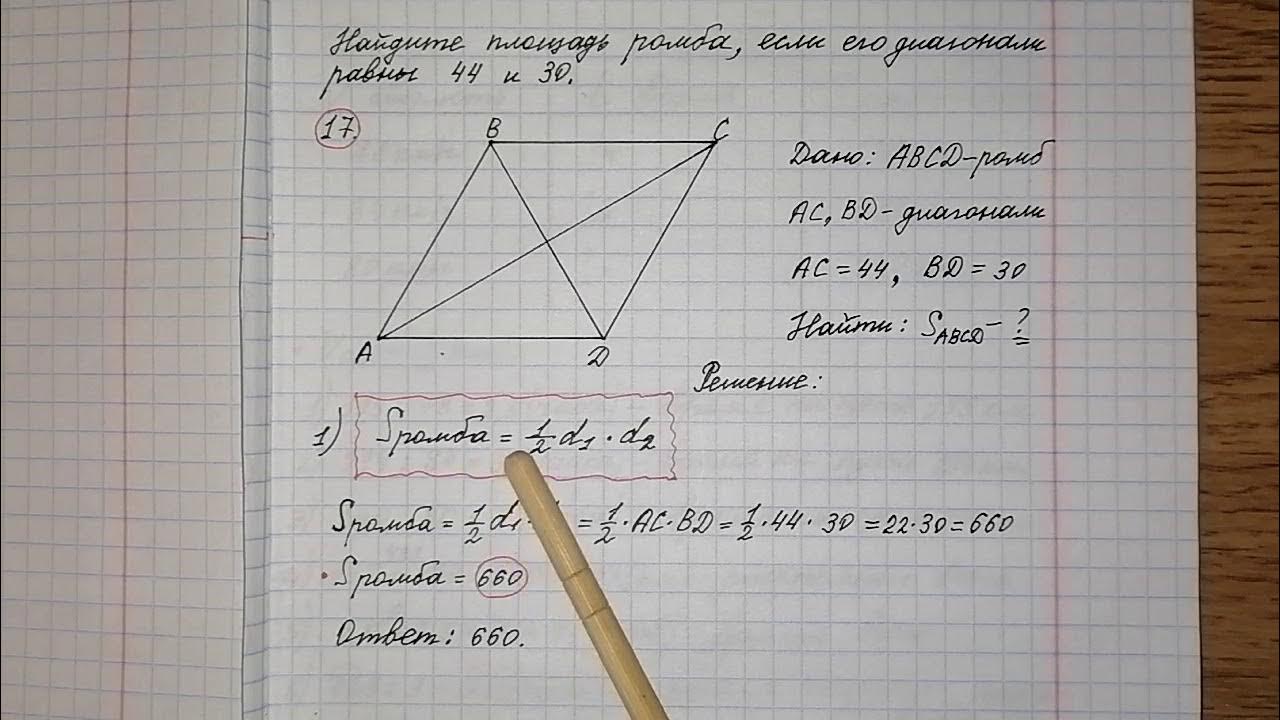 Найдите площадь ромба, если его диагонали
равны 44 и 30.
17.
B
C
A
D
Дано: ABCD-ромб
AC, BD - диагонали
AC = 44, BD = 30
Найти: SABCD - ?
Решение:
1) Sромба = 1/2 d1 · d2
Sромба = 1/2 d1 · = 1/2 · AC · BD = 1/2 · 44 · 30 = 22 · 30 = 660
Sромба = 660
Ответ: 660.